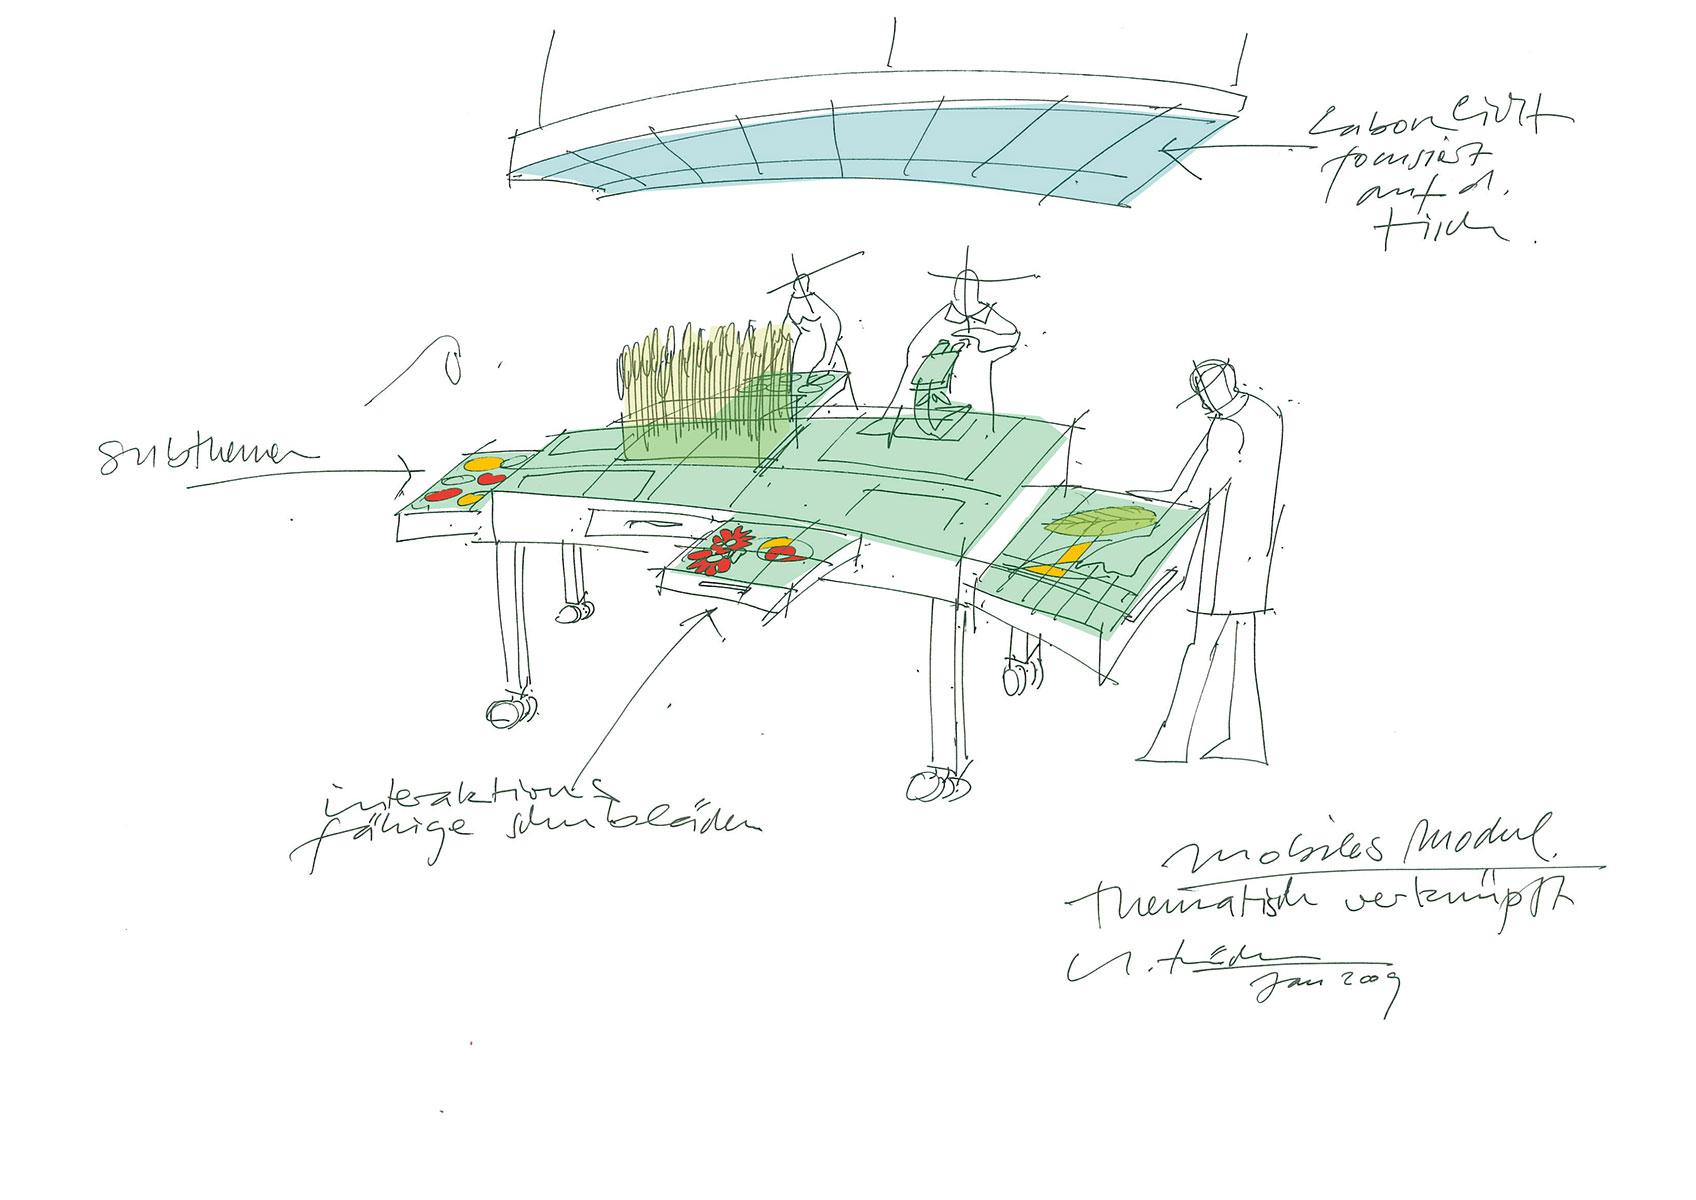 Laborlicht
fokusiert
auf d.
Tisch.
Subthemen
interaktions
fähige schubläden
mobiles Modul.
thematisch verknüpft
Jan 2009